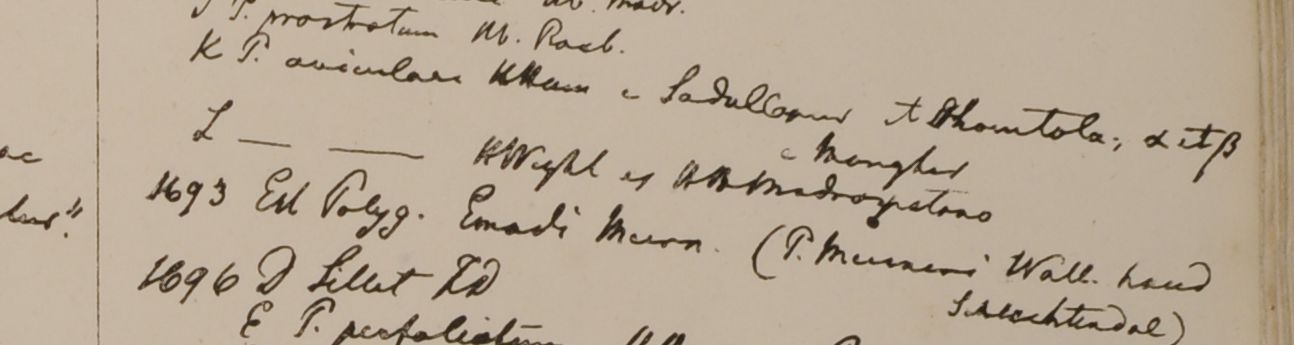 P. prostratum Hb. Roxb.
K P. aviculare HHam e Sadullapur et Dhamtola, α et β
e Mongher
L — — HWight ex HB Madraspatano
1693 Est Polyg. Emodi Meisn. (P. Meisneri Wall. haud
Schlechtendal)
1696 D Sillet FD
E P. perfoliatum